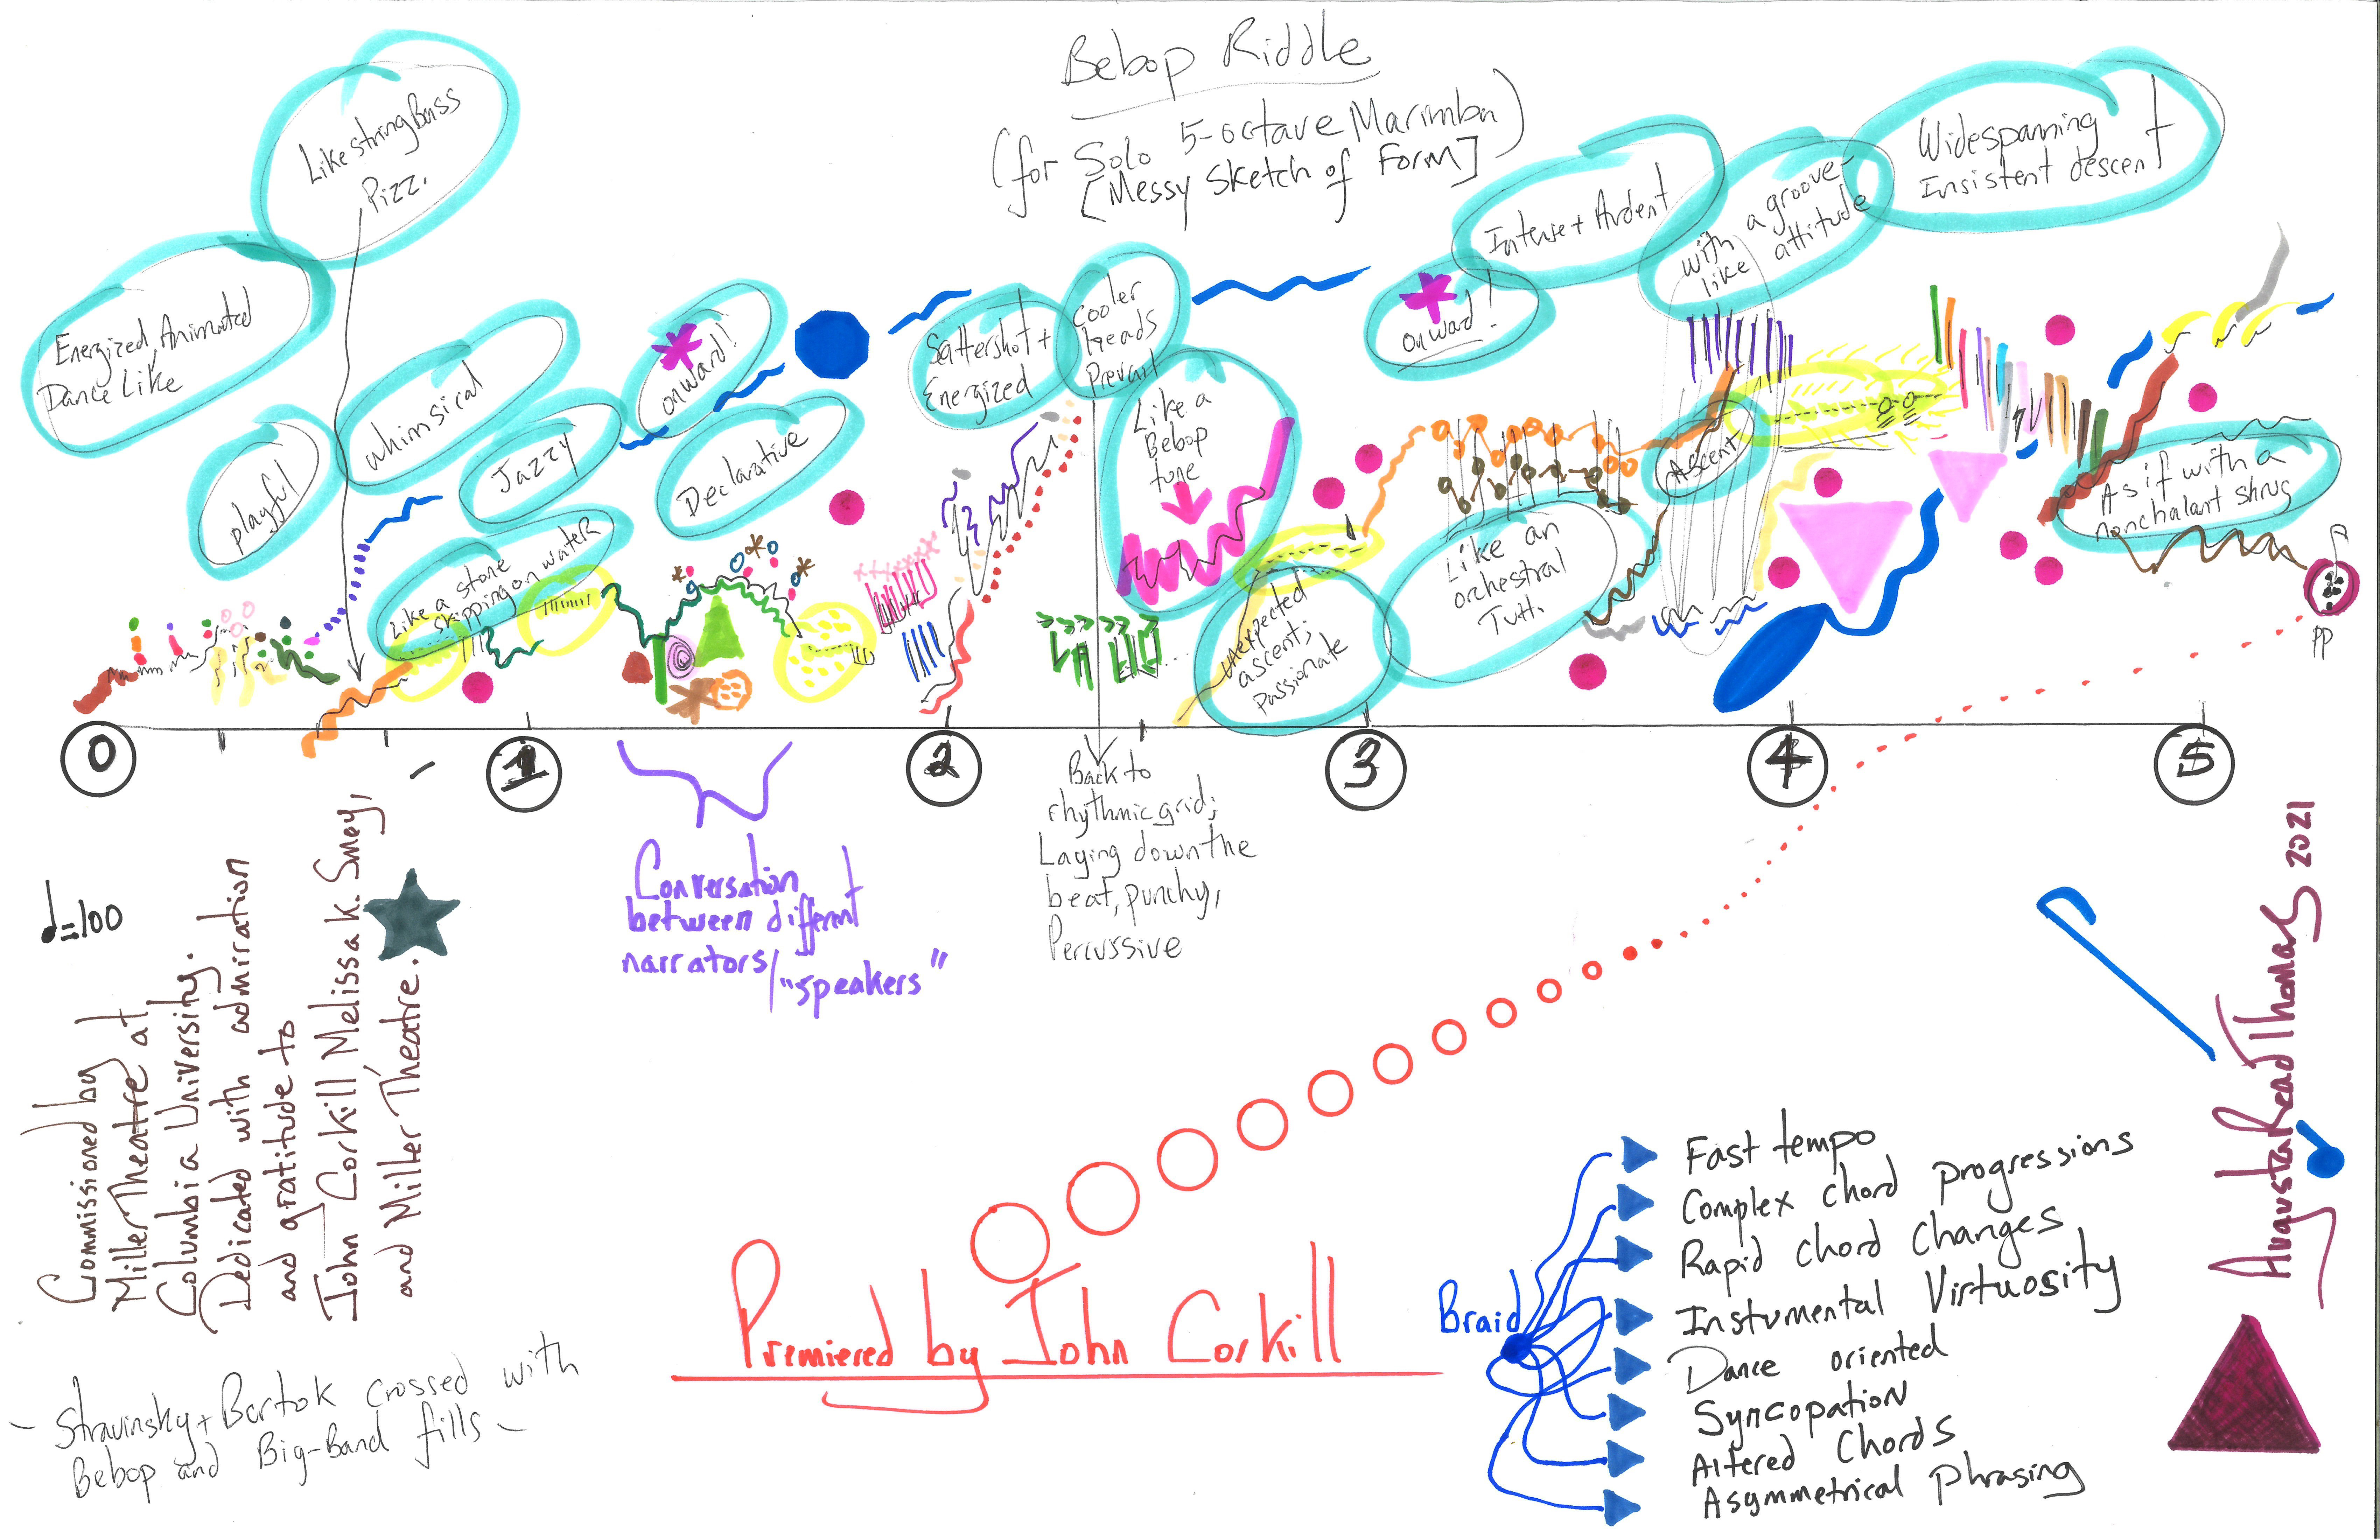 Bebop Riddle
(for Solo 5-octave Marimba)
[Messy Sketch of Form]
Like string Bass
Pizz.
Energized, Animated
Dance Like
playful
whimsical
Jazzy
Like a stone
skipping on water
onward!
Declarative
Scattershot +
Energized
Cooler
heads
Prevail
Like a
Bebop
tune
unexpected
ascent;
passionate
onward!
Intense + Ardent
Like an
orchestral
Tutti
with a groove-
like attitude
Ascent
Widespanning
Insistent descent
As if with a
nonchalant shrug
PP
0
1
2
3
4
5
♩=100
Commissioned by
Miller Theatre at
Columbia University.
Dedicated with admiration
and gratitude to
John Corkill, Melissa K. Smey,
and Miller Theatre.
Conversation
between different
narrators/
"speakers"
Back to
rhythmic grid;
Laying down the
beat, punchy,
Percussive
Premiered by John Corkill
Braid
Fast tempo
Complex chord progressions
Rapid chord changes
Instumental Virtuosity
Dance oriented
Syncopation
Altered Chords
Asymmetrical phrasing
Augusta Read Thomas 2021
- Stravinsky + Bartok crossed with
Bebop and Big-Band fills -